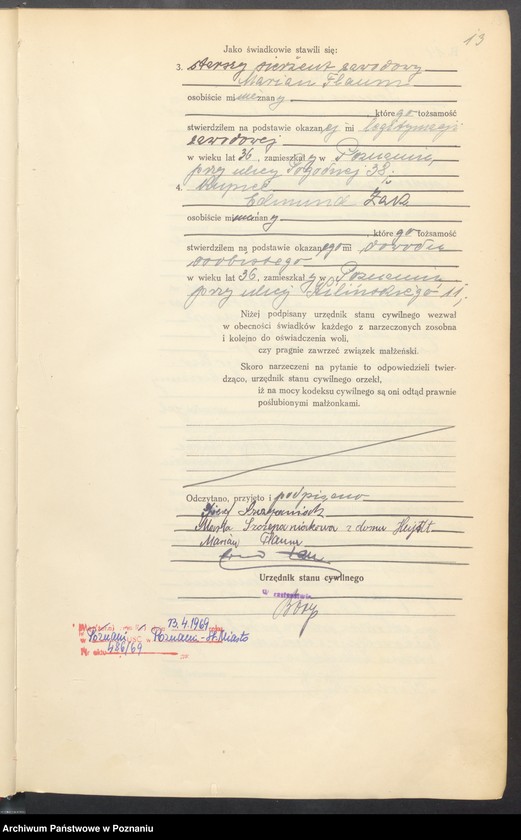 13
Jako świadkowie stawili się:
3. starszy sierżant zawodowy
Marian Flaum
osobiście mi nieznany
, którego tożsamość
stwierdziłem na podstawie okazanej mi legitymacji
zawodowej
w wieku lat 36, zamieszkały w Poznaniu,
przy ulicy Pogodnej 38;
4. kupiec
Edmund Żak
osobiście mi nieznany
, którego tożsamość
stwierdziłem na podstawie okazanego mi dowodu
osobistego
w wieku lat 36, zamieszkały w Poznaniu,
przy ulicy Kilińskiego 11,
Niżej podpisany urzędnik stanu cywilnego wezwał
w obecności świadków każdego z narzeczonych zosobna
i kolejno do oświadczenia woli,
czy pragnie zawrzeć związek małżeński.
Skoro narzeczeni na pytanie to odpowiedzieli twier-
dząco, urzędnik stanu cywilnego orzekł,
iż na mocy kodeksu cywilnego są oni odtąd prawnie
poślubionymi małżonkami.
Odczytano, przyjęto i podpisano
Józef Szczepaniak
Marta Szczepaniakowa z domu
Marian Flaum
Żak
Urzędnik stanu cywilnego
w zastępstwie
13.4.1969
w Poznań Poznań-St. Miasto
Nr aktu 486/69
Archiwum Państwowe w Poznaniu
www.szukajwarchiwach.gov.pl